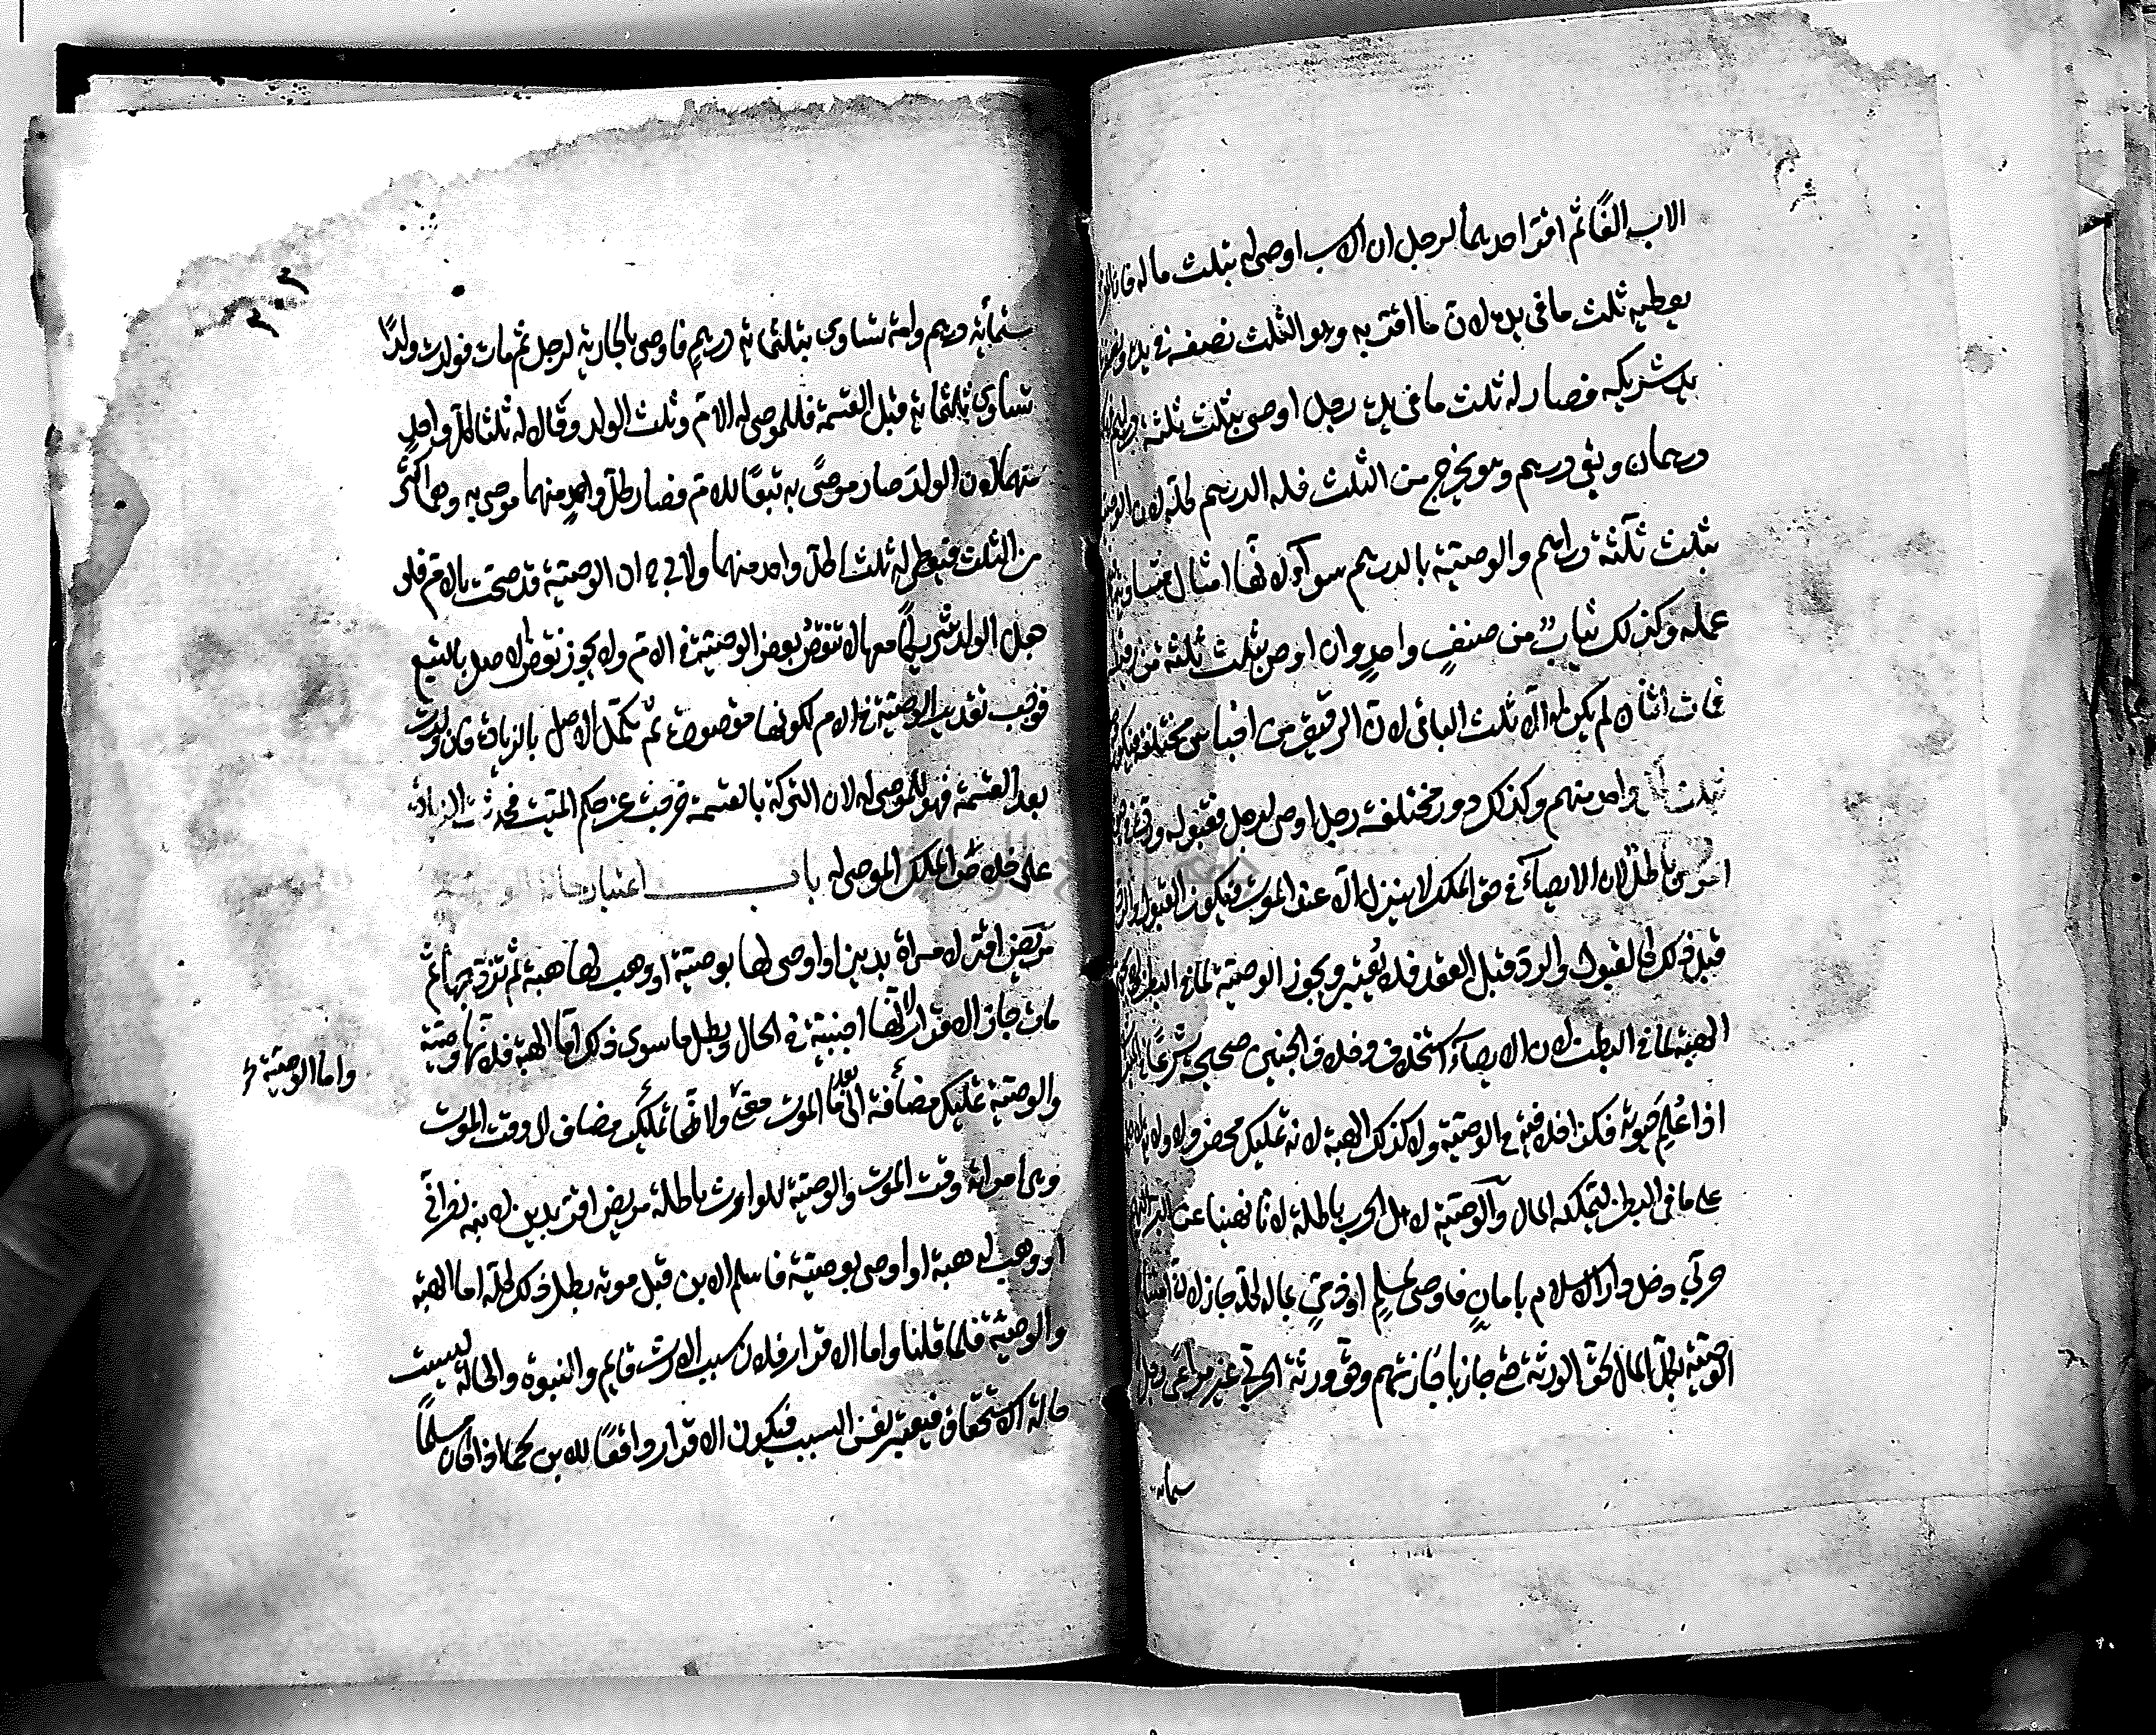 الاب الفًا ثم اقرّ احدهما لرجل ان الاب اوصى له بثلث ماله فانه
يعطيه ثلث ما في يده لان ما اقرّ به وهو الثلث نصفه في يده
يد شريكه فصار له ثلث ما في يده رجل اوصى بثلث ثلثة
درهمان وبقى درهم وهو يخرج من الثلث فله الدرهم كله لان
بثلث ثلثة دراهم والوصية بالدرهم سوآء لانها امثال
عمله وكذلك ثياب من صنفٍ واحدٍ وان اوصى بثلث ثلثة من
فمات اثنان لم يكن له الا ثلث الباقى لان الرقيق من اجناس مختلفة فيكون
ثلث كل واحد منهم وكذلك دور مختلفة رجل اوصى لرجل فقبوله
الموت باطل لان الايصآء في حق الملك لا ينزل الا عند الموت فيكون القبول
قبل ذلك كالقبول والرد قبل العقد فلا يُعتبر ويجوز الوصية لما في البطن
الهبة لما في البطن لان الايصآء استخلاف وخلافة الجنين صحيحة شرعًا
اذا عُلم حيوته فكذا خلافته في الوصية ولا كذلك الهبة لانه تمليك محض ولا ولاية
على ما في البطن ليملكه المال والوصية لاهل الحرب باطلة لانا نهينا عن
حربي دخل دار الاسلام بامانٍ فاوصى لمسلمٍ او ذميّ بماله كله جاز لان امتناع
الوصية بكل المال لحق الورثة حتى جاز باجازتهم وحق ورثة الحربي غير مراعًى
ستمائة
ستمائة درهم وامة تساوى بثلثمائة درهم فاوصى بالجارية لرجل ثم مات فولدت ولدًا
تساوى ثلثمائة قبل القسمة فللموصى له الام وثلث الولد وقالا له ثلثا كل واحدٍ
منهما لان الولد صار موصًى به تبعًا للام فصار كل واحدٍ منهما موصى به وهما اكثر
من الثلث فيعطى له ثلثا كل واحد منهما ولابي ح ان الوصية قد صحت بالام فلو
جعل الولد شريكًا معها لانتقض بعض الوصية في الام ولا يجوز نقض الاصل بالتبع
فوجب تقديم الوصية في الام لكونها مقصودة ثم تكمل الاصل بالزيادة فان ولدت
بعد القسمة فهو للموصى له لان التركة بالقسمة خرجت عن حكم الميت فحدثت الزيادة
على خالص ملك الموصى له باب اعتبار
مريض اقر لامراة بدين او اوصى لها بوصية او وهب لها هبة ثم تزوجها ثم
مات جاز الاقرار لانها اجنبية في الحال وبطل ما سوى ذلك اما الهبة فلانها وصية
واما الوصية
والوصية تمليك مضافة الى ما بعد الموت ولانها تمليك مضاف الى وقت الموت
وهى امراته وقت الموت والوصية للوارث باطلة مريض اقر بدين لابنه نصراني
او وهب له هبة او اوصى بوصية فاسلم الابن قبل موته بطل ذلك كله اما الهبة
والوصية فلما قلنا واما الاقرار فلان سبب الارث قايم والبنوة والحالة ليست
حالة الاستحقاق فيعتبر نفس السبب فيكون الاقرار واقعًا للابن كما اذا كان مسلمًا